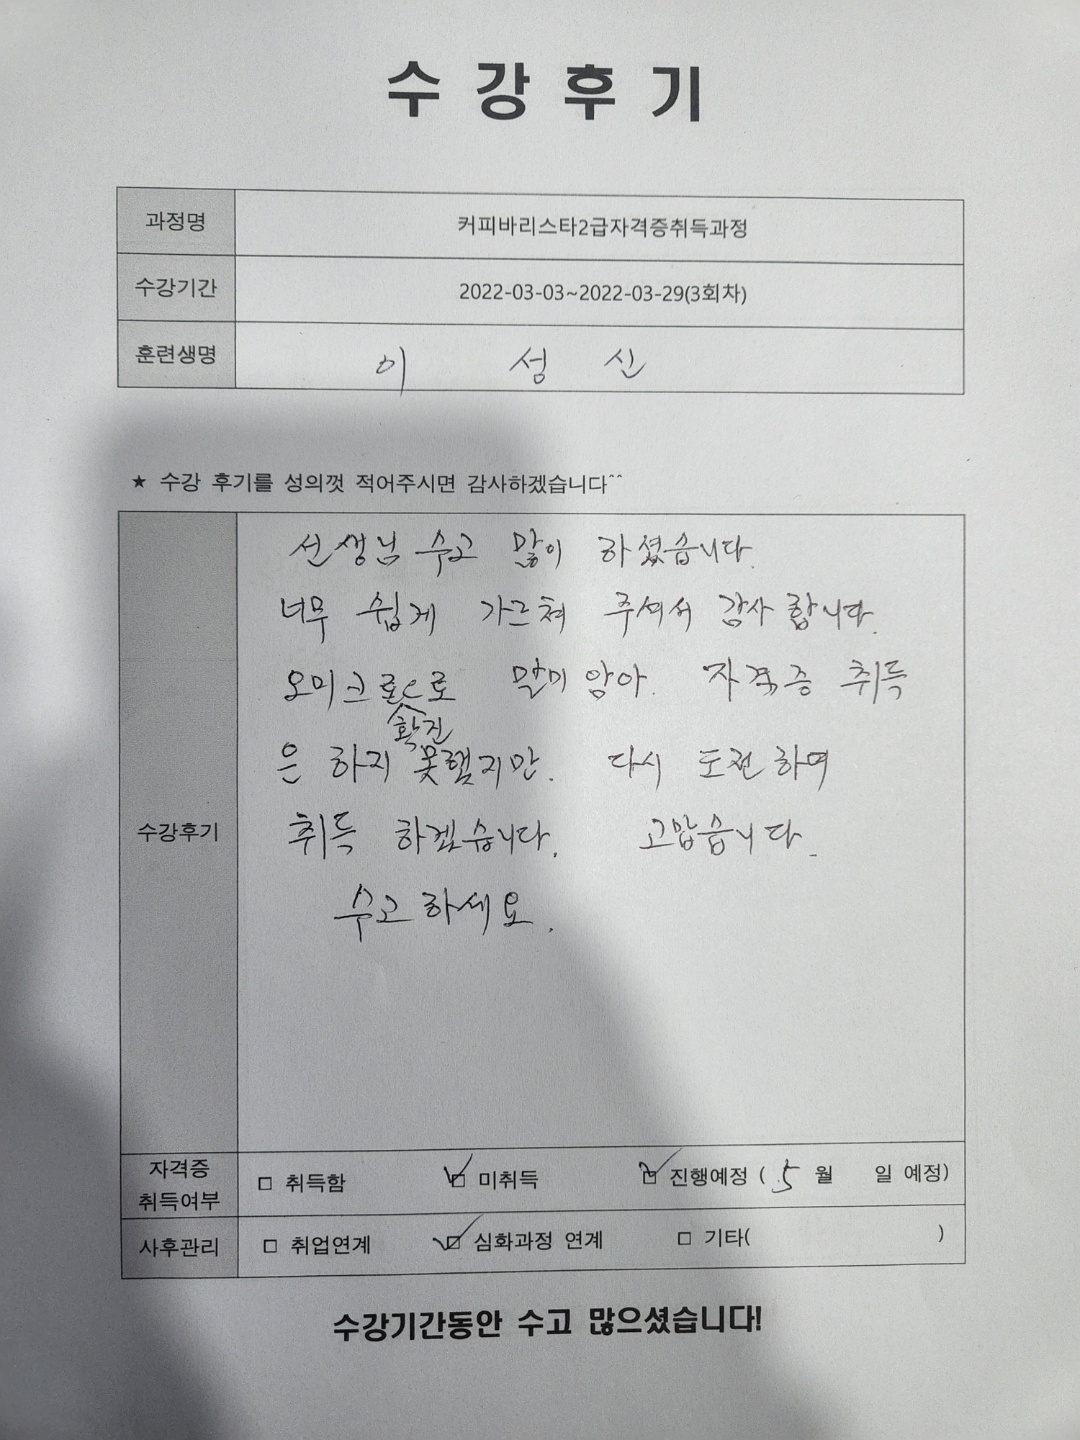 수강후기
과정명 커피바리스타2급자격증취득과정
수강기간 2022-03-03~2022-03-29(3회차)
훈련생명 이 성 신
★ 수강 후기를 성의껏 적어주시면 감사하겠습니다^^
수강후기
선생님 수고 많이 하셨습니다.
너무 쉽게 가르쳐 주셔서 감사 합니다.
오미크론 확진으로 말미 암아. 자격증 취득
은 하지 못했지만. 다시 도전 하여
취득 하겠습니다. 고맙습니다.
수고 하세요.
자격증 취득여부 □ 취득함 ☑ 미취득 ☑ 진행예정 ( 5 월 일 예정)
사후관리 □ 취업연계 ☑ 심화과정 연계 □ 기타( )
수강기간동안 수고 많으셨습니다!